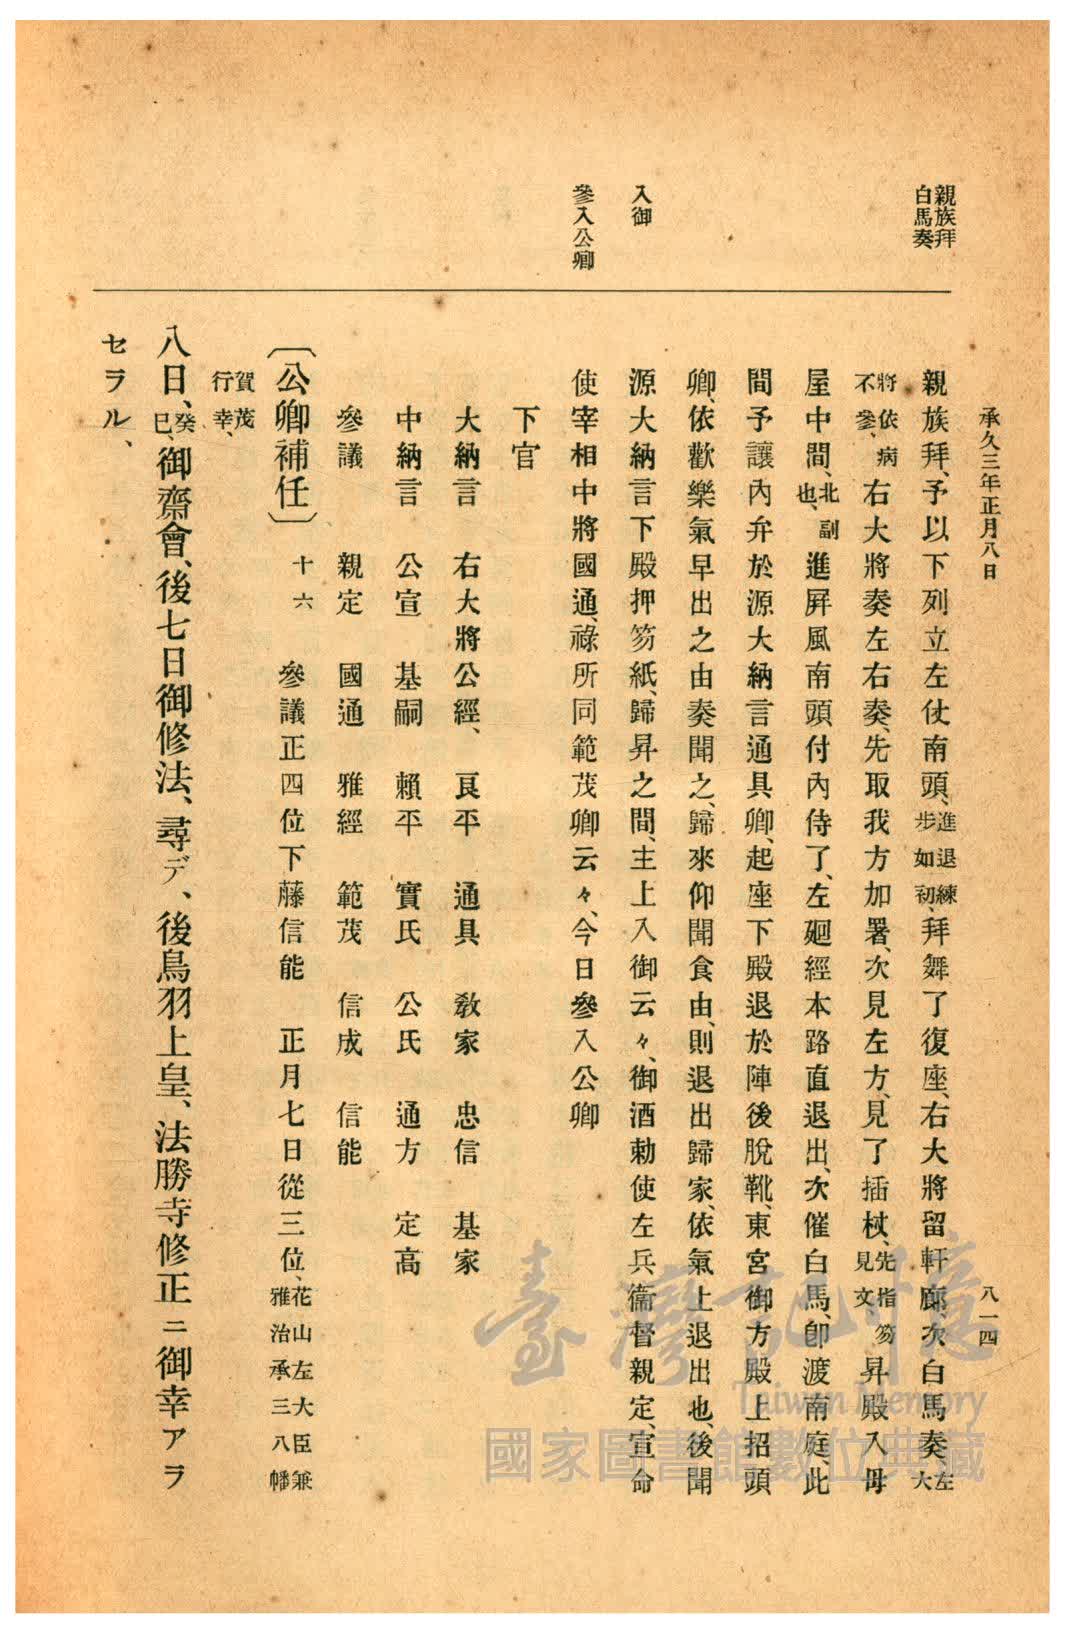 承久三年正月八日
八一四
親族拜
白馬奏
入御
參入公卿
親族拜、予以下列立左仗南頭、進退練步如初、拜舞了復座、右大將留軒廊、次白馬奏、左大
將依病不參、右大將奏左右奏、先取我方加署、次見左方、見了插杖、先指笏見文、昇殿入母
屋中間、北副也、進屛風南頭、付內侍了、左廻經本路直退出、次催白馬、卽渡南庭、此
間予讓內弁於源大納言通具卿、起座下殿退於陣後脫靴、東宮御方殿上招頭
卿、依歡樂氣早出之由奏聞之、歸來仰聞食由、則退出歸家、依氣上退出也、後聞
源大納言下殿押笏紙、歸昇之間、主上入御云々、御酒勅使左兵衞督親定、宣命
使宰相中將國通、祿所同範茂卿云々、今日參入公卿
下官
大納言 右大將公經、 良平 通具 敎家 忠信 基家
中納言 公宣 基嗣 賴平 實氏 公氏 通方 定高
參議 親定 國通 雅經 範茂 信成 信能
〔公卿補任〕 十六 參議正四位下藤信能 正月七日從三位、花山左大臣兼雅治承三八幡
賀茂行幸、
八日、癸巳、御齋會、後七日御修法、尋デ、後鳥羽上皇、法勝寺修正ニ御幸アラ
セラル、
臺灣記憶
Taiwan Memory
國家圖書館數位典藏